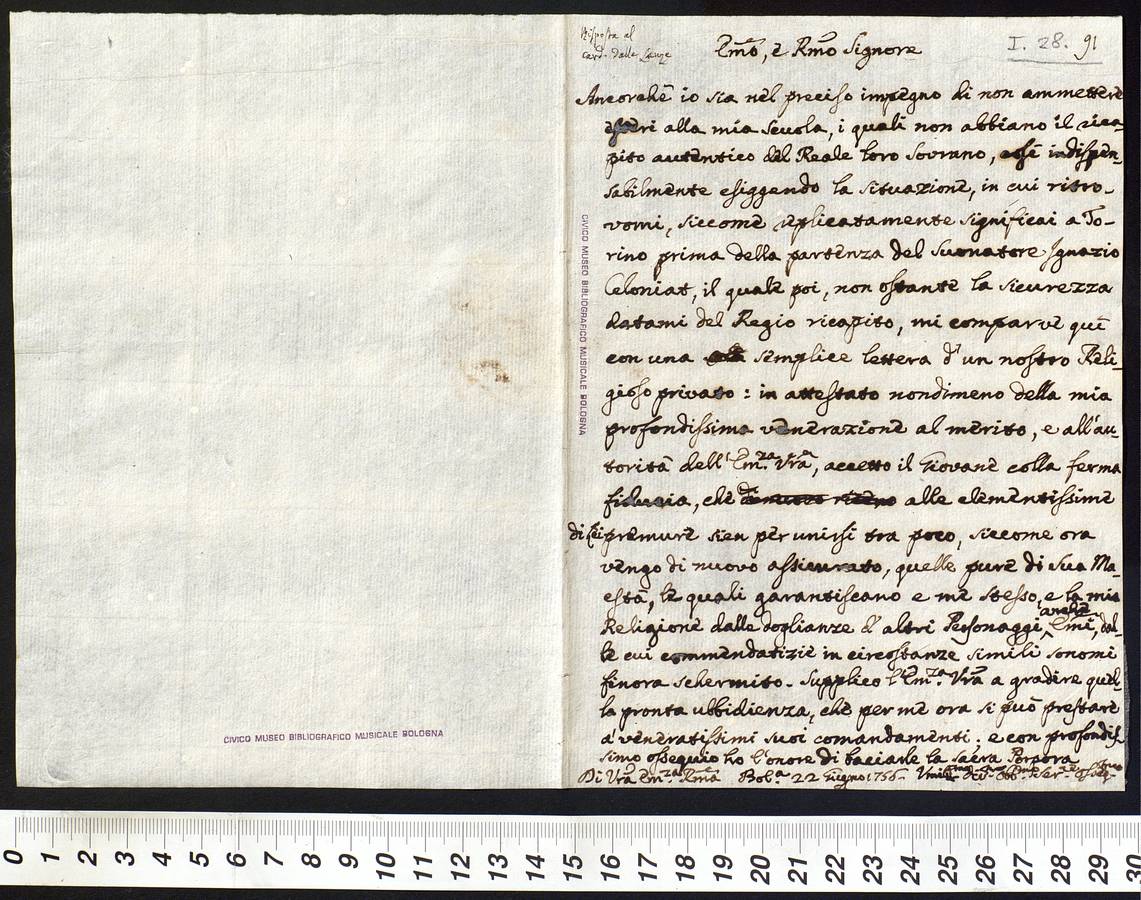 CIVICO MUSEO BIBLIOGRAFICO MUSICALE BOLOGNA
Risposta al
card. dalle Lanze
Em̃o, e Rm̃o Signore
I. 28. 91
CIVICO MUSEO BIBLIOGRAFICO MUSICALE BOLOGNA
Ancorchè io sia nel preciso impegno di non ammettere
esteri alla mia scuola, i quali non abbiano il rica-
pito autentico del Reale loro Sovrano, così indispen-
sabilmente esiggendo la situazione, in cui ritro-
vomi, siccome replicatamente significai a To-
rino prima della partenza del suonatore Ignazio
Celoniat, il quale poi, non ostante la sicurezza
datami del Regio ricapito, mi comparve quì
con una semplice lettera d'un nostro Reli-
gioso privato: in attestato nondimeno della mia
profondissima venerazione al merito, e all'au-
torità dell'Em.za Vrã, accetto il Giovane colla ferma
fiducia, che alle clementissime
di Lei premure sien per unirsi tra poco, siccome ora
vengo di nuovo assicurato, quelle pure di Sua Ma-
està, le quali garantiscano e me stesso, e la mia
Religione dalle doglianze d'altri Personaggi, anche Em̃i, dal-
le cui commendatizie in circostanze simili sonomi
finora schermito. Supplico l'Em.za Vrã a gradire quel-
la pronta ubbidienza, che per me ora si può prestare
a' veneratissimi suoi comandamenti. e con profondis-
simo ossequio ho l'onore di baciare la sacra Porpora
Di Vrã Em.za Rm̃a Bol.a 22 Giugno 1756.
0 1 2 3 4 5 6 7 8 9 10 11 12 13 14 15 16 17 18 19 20 21 22 23 24 25 26 27 28 29 30